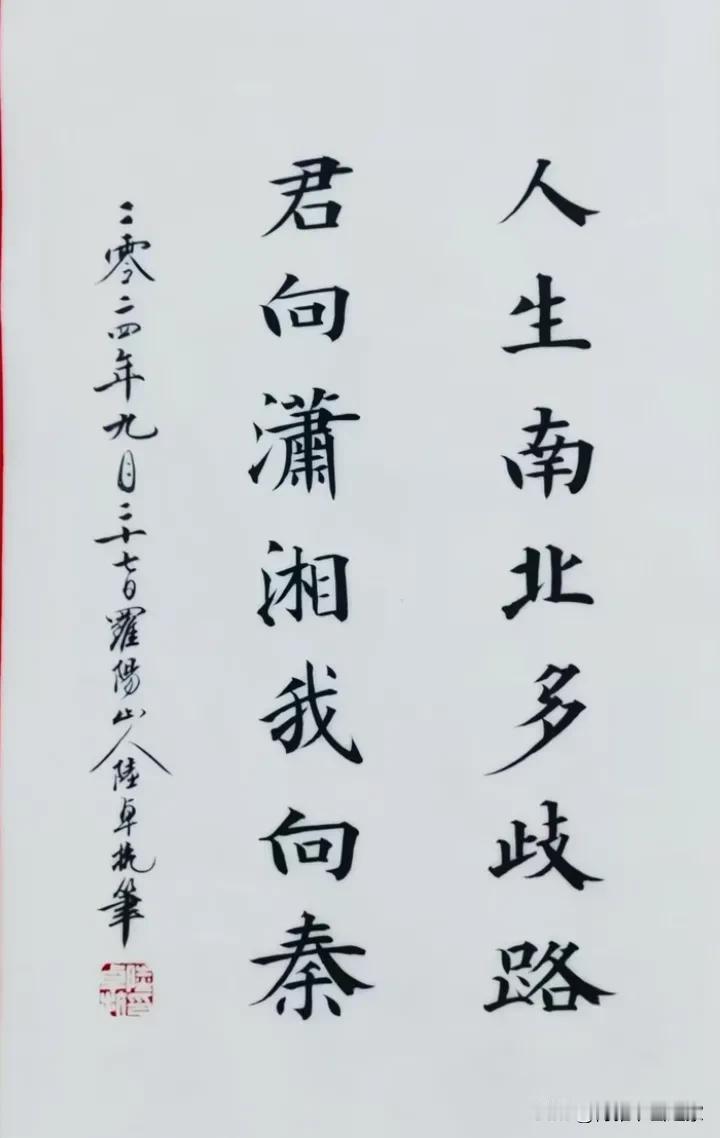 人生南北多歧路
君向瀟湘我向秦
二零二四年九月二十七日羅陽山人陸卓抗筆